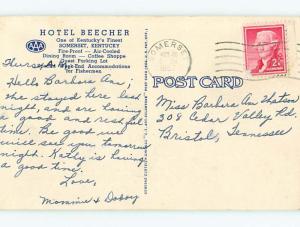 HOTEL BEECHER
One of Kentucky's Finest
SOMERSET, KENTUCKY
AAA
Fire-Proof — Air-Cooled
Dining Room — Coffee Shoppe
Guest Parking Lot
Week-End Accommodations
for Fishermen
Thurs. A.M.
Hello Barbara Ann,
We stayed here last
night, and are having
a good and restful
time. Be good we
will see you tomorrow
night. Kathy is having
a good time.
Love,
Mommie & Daddy
POST CARD
SOMERSE
2¢
Miss Barbara Ann Watson
308 Cedar Valley Rd.
Bristol, Tennessee